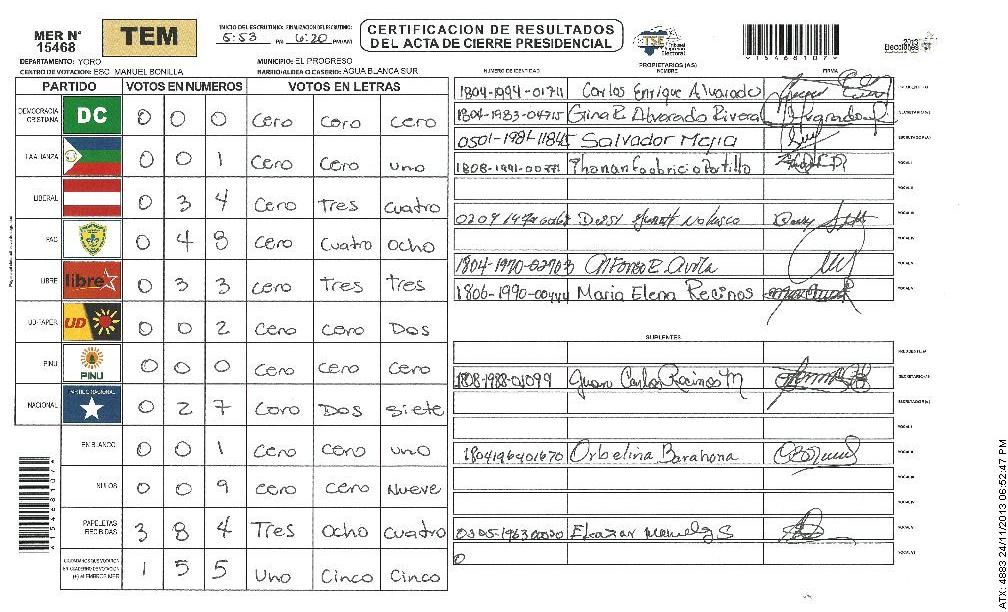 MER N°
15468
TEM
INICIO DEL ESCRUTINIO: FINALIZACION DEL ESCRUTINIO:
5:53 PM 6:20 PM/AM
CERTIFICACION DE RESULTADOS
DEL ACTA DE CIERRE PRESIDENCIAL
TSE Tribunal Supremo Electoral
15468107
2013
Elecciones
DEPARTAMENTO: YORO
MUNICIPIO: EL PROGRESO
CENTRO DE VOTACION: ESC MANUEL BONILLA
BARRIO/ALDEA O CASERIO: AGUA BLANCA SUR
PARTIDO VOTOS EN NUMEROS VOTOS EN LETRAS
DEMOCRACIA CRISTIANA DC 0 0 0 Cero Cero cero
LA ALIANZA 0 0 1 Cero Cero uno
LIBERAL 0 3 4 Cero Tres Cuatro
PAC 0 4 8 Cero Cuatro ocho
LIBRE libre 0 3 3 Cero Tres Tres
UD-FAPER UD 0 0 2 Cero Cero Dos
PINU PINU 0 0 0 Cero Cero Cero
NACIONAL PARTIDO NACIONAL 0 2 7 Cero Dos Siete
EN BLANCO 0 0 1 Cero Cero uno
NULOS 0 0 9 Cero Cero Nueve
PAPELETAS RECIBIDAS 3 8 4 Tres Ocho Cuatro
CIUDADANOS QUE VOTARON EN CUADERNO DE VOTACION (+) MIEMBROS MER 1 5 5 Uno Cinco Cinco
PROPIETARIOS (AS)
NUMERO DE IDENTIDAD NOMBRE FIRMA
1804-1994-01711 Carlos Enrique Alvarado
1804-1983-04715 Gina E Alvarado Rivera
0501-1981-11845 Salvador Mejia
1808-1991-00771 Portillo
1804-1970-02703 Alfonso E. Avila
1806-1990-00444 Maria Elena Recinos
SUPLENTES
1808-1988-01099 Juan Carlos Recinos M
1804196401670 Orbelina Barahona
Eleazar S
0
15468107
ATX: 4883 24/11/2013 06:52:47 PM